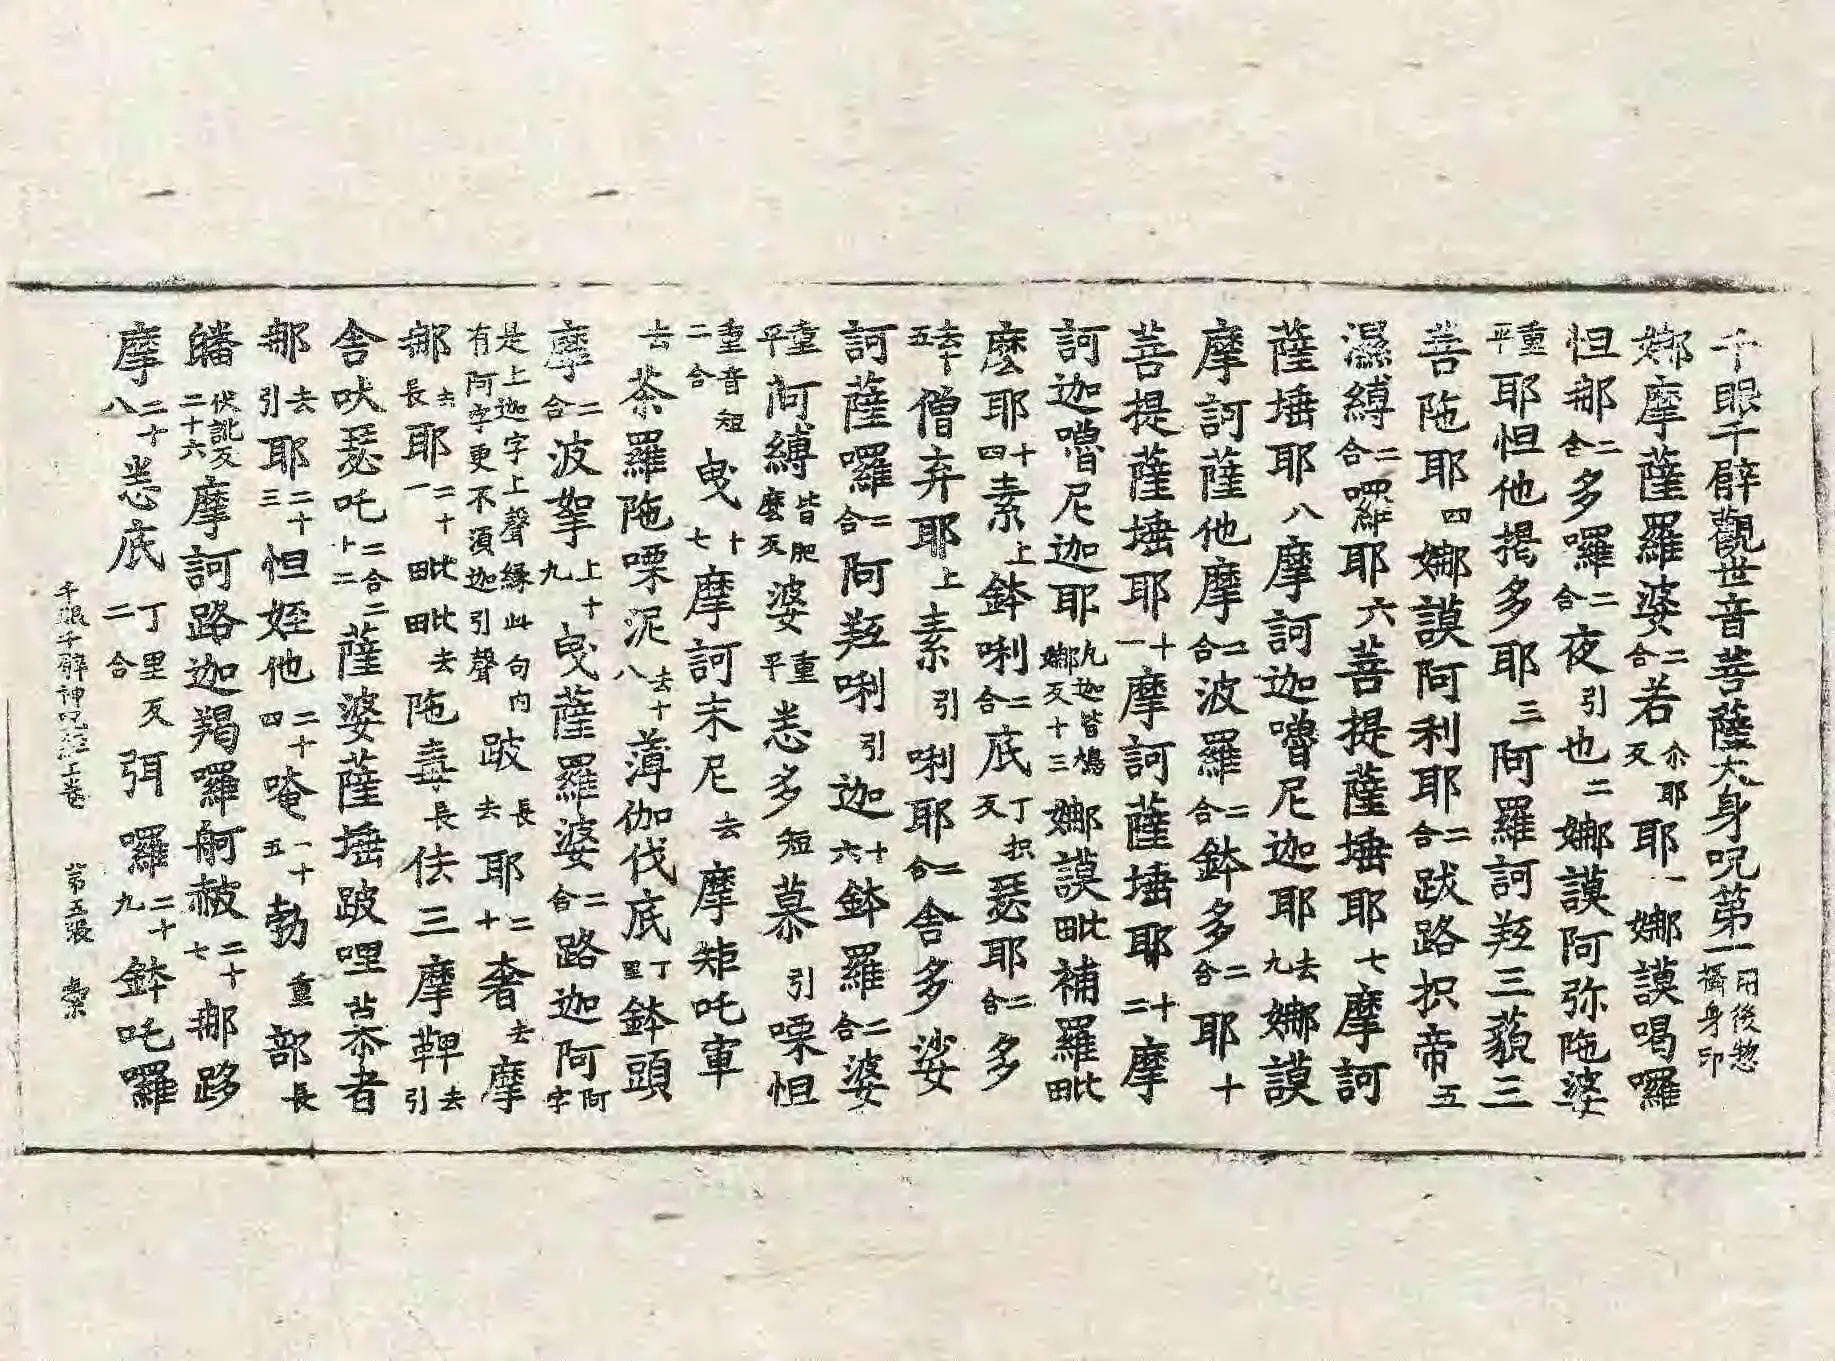 千眼千臂觀世音菩薩大身呪第一用後惣攝身印
娜摩薩羅婆二合若尒耶反耶一娜謨喝囉
怛那二合多囉二合夜引也二娜謨阿弥陁婆
重平耶怛他揭多耶三阿羅訶羝三藐三
菩陁耶四娜謨阿利耶二合跋路抧帝五
濕縛二合囉耶六菩提薩埵耶七摩訶
薩埵耶八摩訶迦嚕尼迦耶去九娜謨
摩訶薩他摩二合波羅二合鉢多二合耶十
菩提薩埵耶十一摩訶薩埵耶十二摩
訶迦嚕尼迦耶凡迦皆鳩娜反十三娜謨毗補羅毗
麼耶十四素上鉢唎二合底丁抧反瑟耶二合多
去十五僧弃耶上素引唎耶二合舍多娑
訶薩囉二合阿羝唎引迦十六鉢羅二合婆
重平阿縛皆肥麼反婆重平悉多短慕引嘌怛
重音短二合曳十七摩訶末尼去摩矩吒軍
去荼羅陁嘌泥去十八薄伽伐底丁里鉢頭
摩二合波拏上十九曳薩羅婆二合路迦阿阿字
是上迦字上聲緣此句内有阿字更不須迦引聲跛長去耶二十奢去摩
那去長耶二十一毗毗去陁毒長佉三摩鞞去引
舍吠瑟吒二合二十二薩婆薩埵跛哩岧者
那去引耶二十三怛姪他二十四唵一十五勃重部長
皤伏訛反二十六摩訶路迦羯囉舸赧二十七那路
摩二十八悉底丁里反二合弭囉二十九鉢吒囉
千眼千臂神呪經上卷　第五張　𣡸